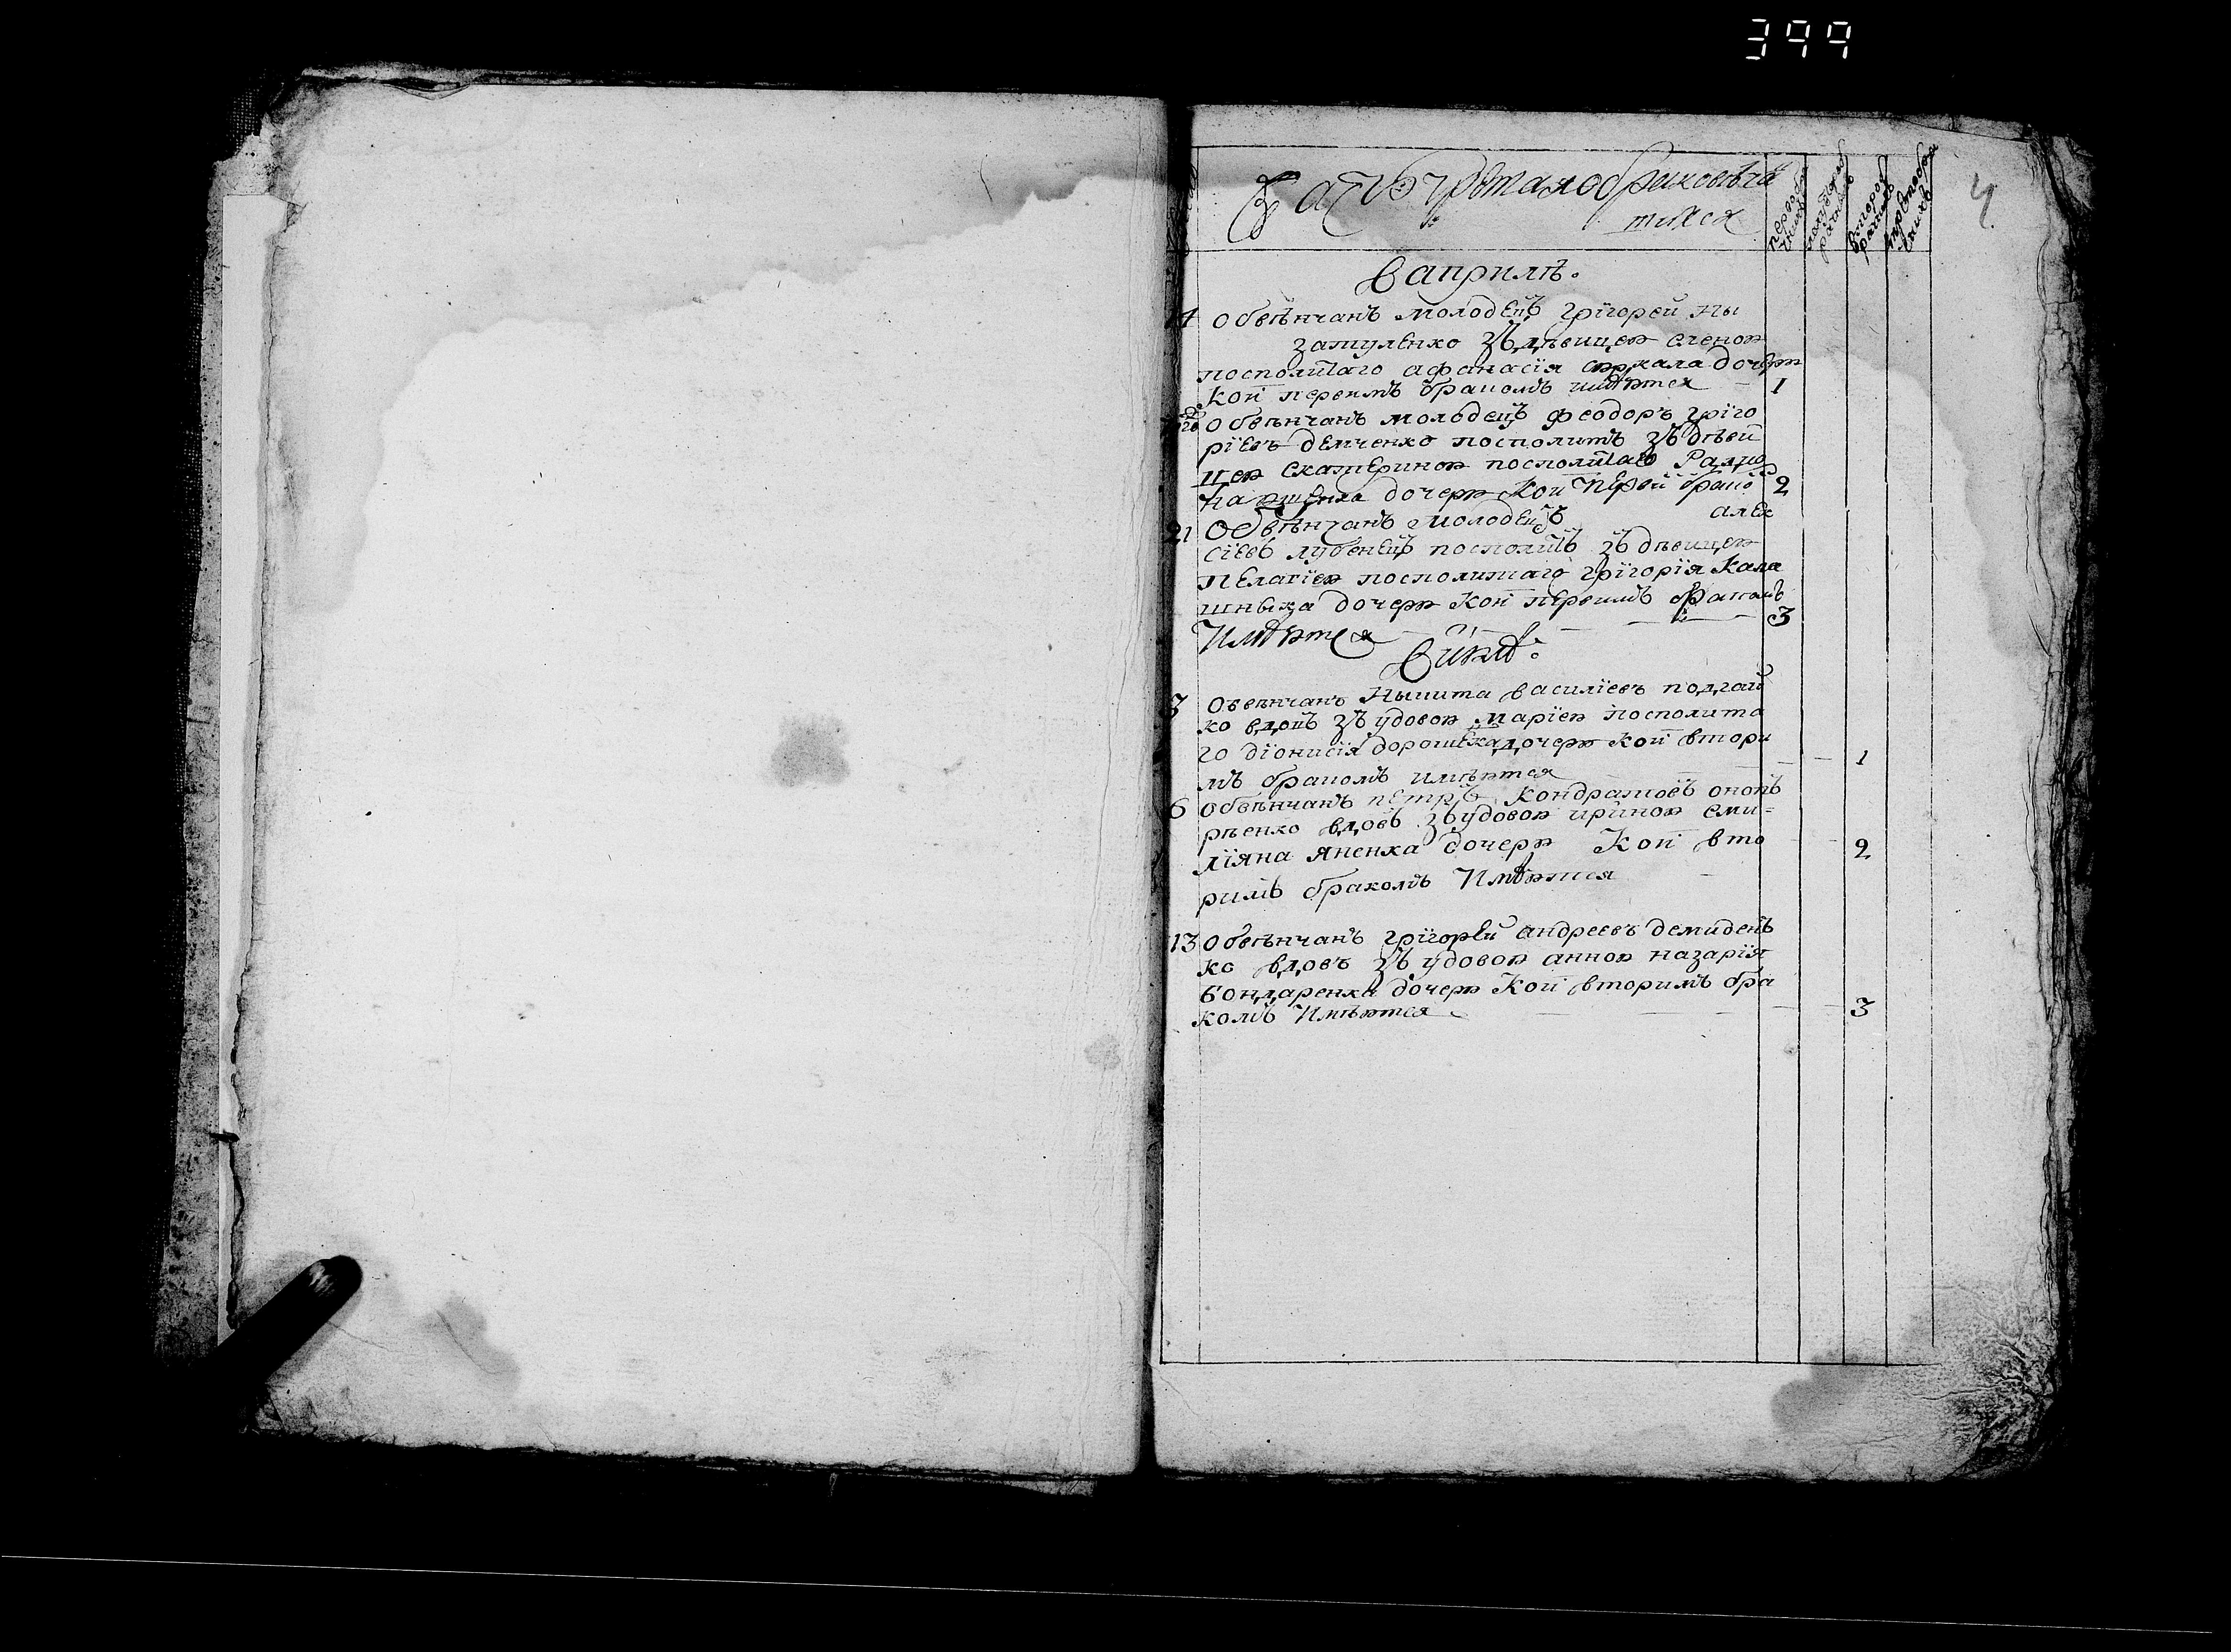 399
4
Части втаяобраковѣча
тияся
В априлѣ.
14 Обвѣнчанъ молодецъ григорей Ны
замуленко зъ дѣвицею еленою
посполитаго афанасія дочерю
кои первимъ бракомъ имѣются 1
Обвѣнчанъ молодецъ феодоръ григо
ріевъ демченко посполитъ зъ дѣви
цею Екатериною посполитаго
дочерю кои перви брако 2
21 Обвѣнчанъ молодецъ алек
сіевъ лубенецъ посполитъ зъ дѣвицею
пелагіею посполитаго григорія Кала
шныка дочерю кои первимъ браколъ
Имѣются 3
В іюлѣ:
3 Овѣнчанъ Никита василіевъ подгай
ко вдовъ зъ удовою маріею посполита
го діонисія дорошенка дочерю кои втори
мъ бракомъ имѣются 1
6 Обвѣнчанъ петръ Кондратовъ онопъ
рѣенко вдовъ зъ удовою ириною еми=
ліяна яненка дочерю Кои вто 2
римъ бракомъ Имѣются
13 Обвѣнчанъ григорей андреевъ демиденъ
ко вдовъ зъ удовою анною назарія
бондаренка дочерю Кои вторимъ бра
комъ Имѣются 3